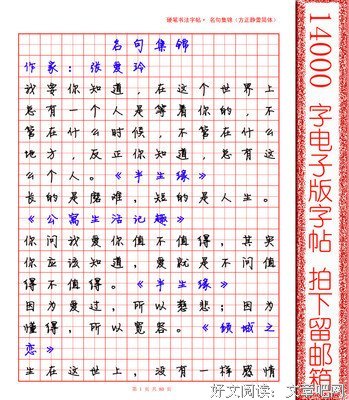 硬笔书法字帖· 名句集锦 (方正静蕾简体)
名句集锦
作家：张爱玲
我要你知道，在这个世界上
总有一个人是等着你的，不
管在什么时候，不管在什么
地方，反正你知道，总有这
么个人。《半生缘》
长的是磨难，短的是人生。
《公寓生活记趣》
你问我爱你值不值得，其实
你应该知道，爱就是不问值
得不值得。《半生缘》
因为爱过，所以慈悲；因为
懂得，所以宽容。《倾城之
恋》
生在这世上，没有一样感情
第 1 页 共 80 页
14000 字电子版字帖 拍下留邮箱
好文阅读：文章吧网